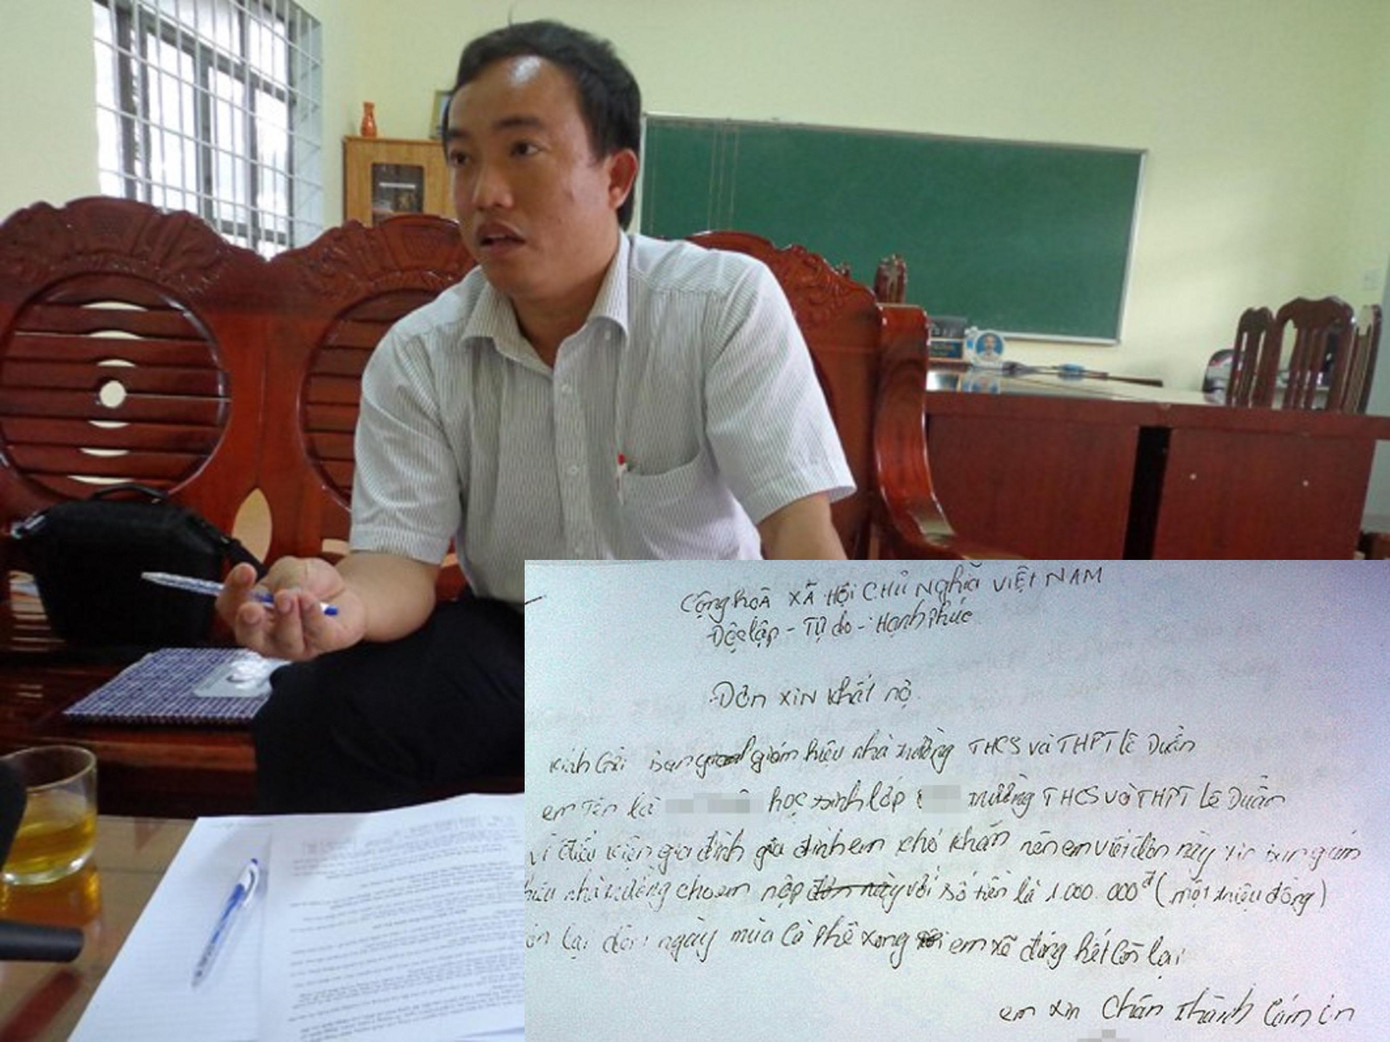 Cộng hoà XÃ HỘI CHỦ Nghĩa VIỆT NAM
Độc lập - Tự do - Hạnh Phúc
Đơn xin khất nợ
kính Gửi ban giám hiệu nhà trường THCS và THPT Lê Duẩn
em Tên là học sinh lớp trường THCS và THPT Lê Duẩn
vì điều kiện gia đình gia đình em khó khăn nên em viết đơn này xin ban giám
hiệu nhà trường cho em nộp đơn này với số tiền là 1.000.000đ (một triệu đồng)
còn lại đến ngày mùa cà phê xong em xẽ đóng hết Còn lại
em xin Chân thành Cám ơn